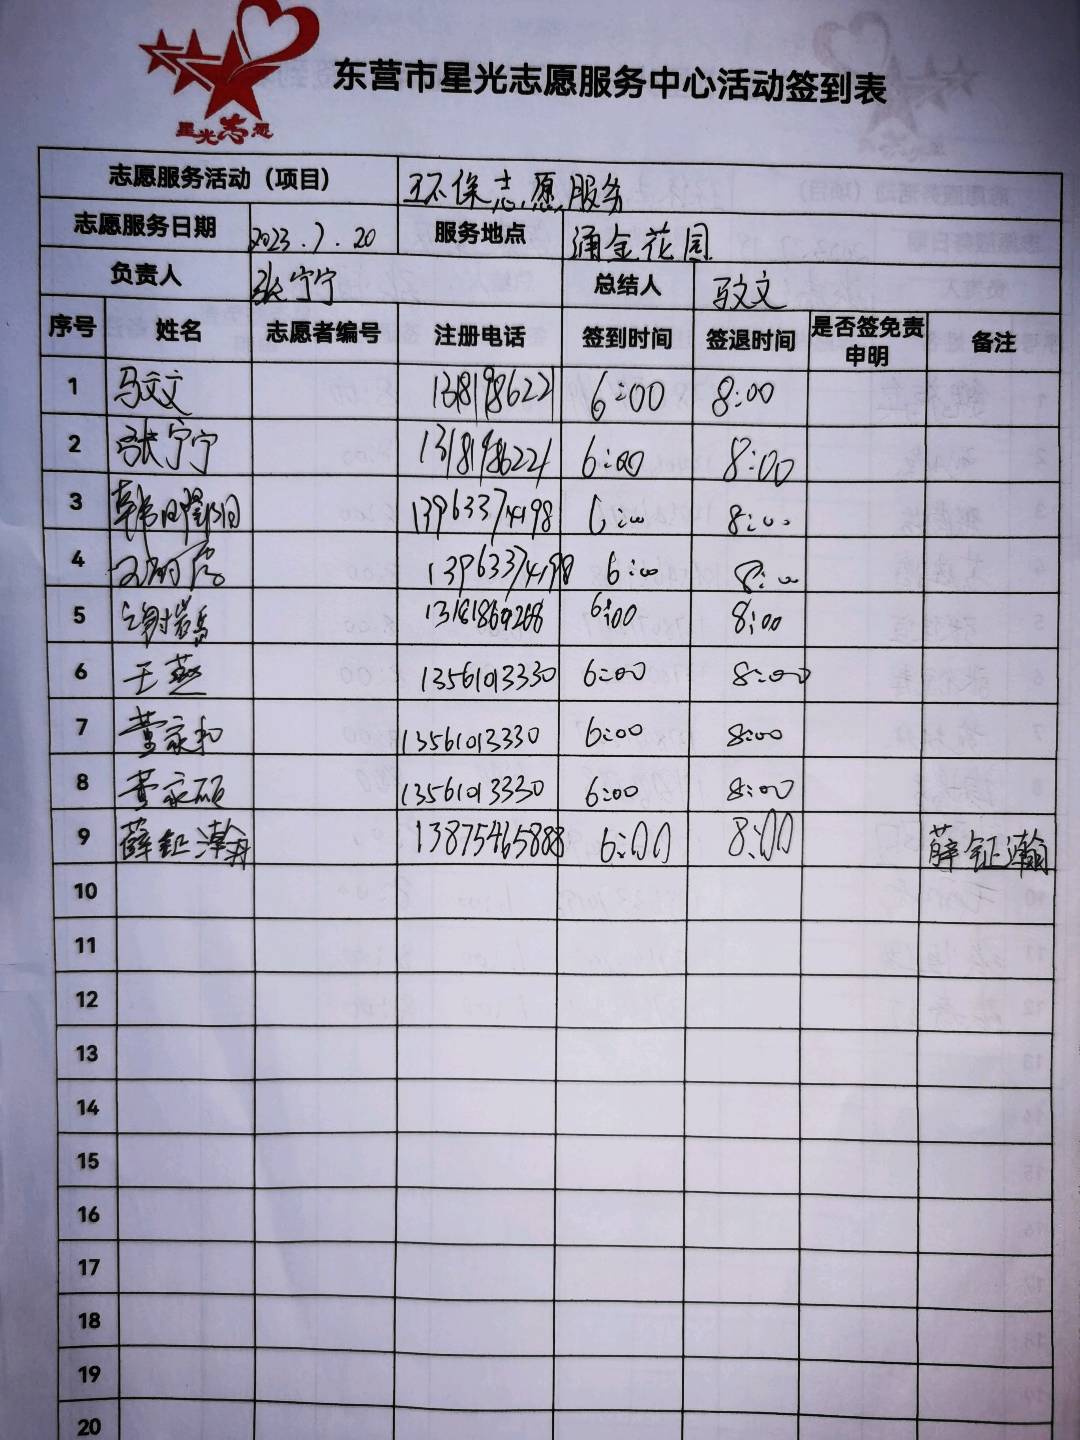 星光志愿
东营市星光志愿服务中心活动签到表
志愿服务活动（项目） 环保志愿服务
志愿服务日期 2023.7.20 服务地点 涌金花园
负责人 张宁宁 总结人 马文文
序号 姓名 志愿者编号 注册电话 签到时间 签退时间 是否签免责申明 备注
1 马文文 6:00 8:00
2 张宁宁 6:00 8:00
3 13963374198 6:00 8:00
4 13963374198 6:00 8:00
5 6:00 8:00
6 王燕 13561013330 6:00 8:00
7 董家和 13561013330 6:00 8:00
8 董家硕 13561013330 6:00 8:00
9 薛钲瀚 13875465888 6:00 8:00 薛钲瀚
10
11
12
13
14
15
16
17
18
19
20